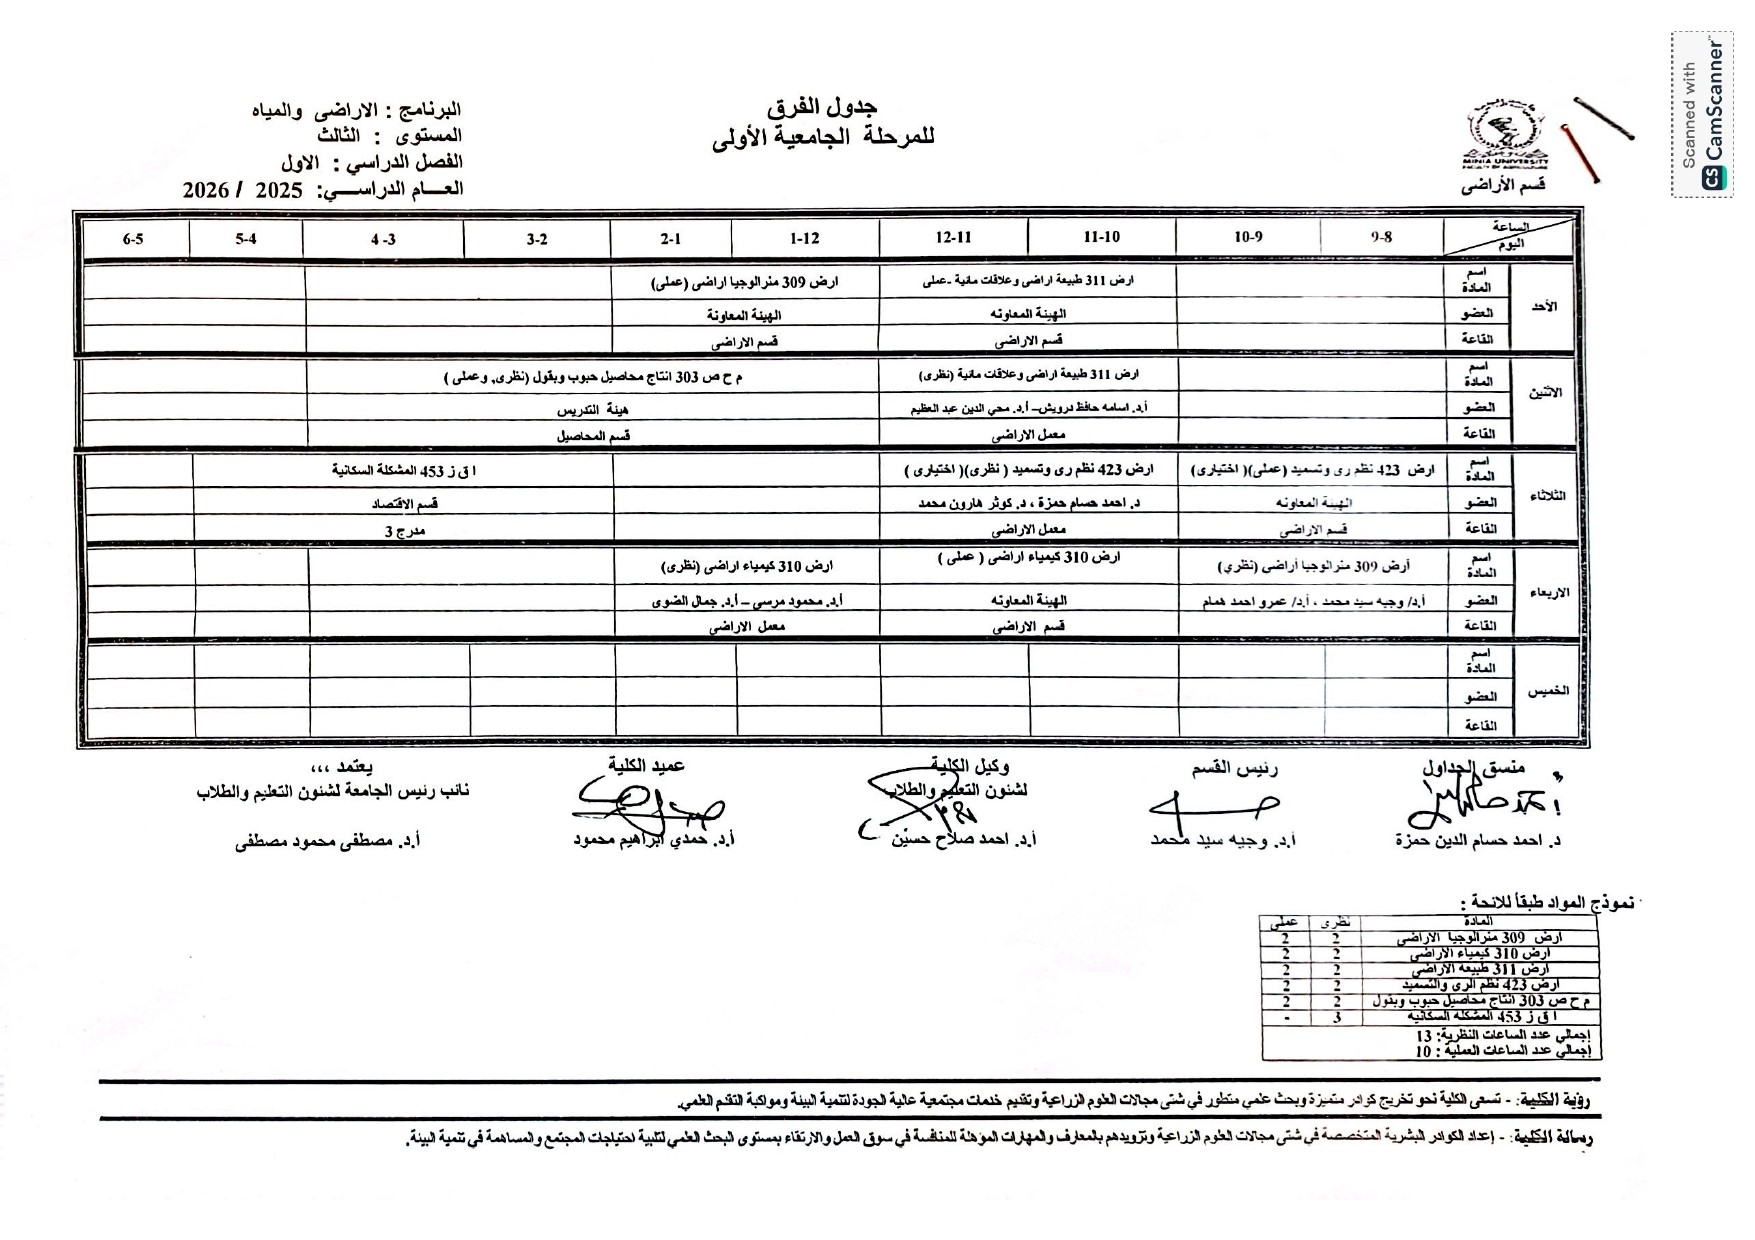 Scanned with
CamScanner
CS
MINIA UNIVERSITY
قسم الأراضى
جدول الفرق
للمرحلة الجامعية الأولى
البرنامج : الاراضى والمياه
المستوى : الثالث
الفصل الدراسي : الاول
العـــام الدراســـي: 2025 / 2026
الساعة
اليوم
9-8 10-9 11-10 12-11 1-12 2-1 3-2 4-3 5-4 6-5
الأحد
اسم المادة ارض 311 طبيعة اراضى وعلاقات مائية -عملى ارض 309 منرالوجيا اراضى (عملى)
العضو الهيئة المعاونه الهيئة المعاونة
القاعة قسم الاراضى قسم الاراضى
الاثنين
اسم المادة ارض 311 طبيعة اراضى وعلاقات مائية (نظرى) م ح ص 303 انتاج محاصيل حبوب وبقول (نظرى, وعملى )
العضو أ.د. اسامه حافظ درويش– أ.د. محي الدين عبد العظيم هيئة التدريس
القاعة معمل الاراضى قسم المحاصيل
الثلاثاء
اسم المادة ارض 423 نظم رى وتسميد (عملى)( اختيارى) ارض 423 نظم رى وتسميد ( نظرى)( اختيارى ) ا ق ز 453 المشكلة السكانية
العضو الهيئة المعاونه د. احمد حسام حمزة ، د. كوثر هارون محمد قسم الاقتصاد
القاعة قسم الاراضى معمل الاراضى مدرج 3
الاربعاء
اسم المادة أرض 309 منرالوجيا أراضى (نظري) ارض 310 كيمياء اراضى ( عملى ) ارض 310 كيمياء اراضى (نظرى)
العضو أ.د/ وجيه سيد محمد ، أ.د/ عمرو احمد همام الهيئة المعاونه أ.د. محمود مرسى – أ.د. جمال الضوى
القاعة قسم الاراضى معمل الاراضى
الخميس
اسم المادة
العضو
القاعة
منسق الجداول رئيس القسم وكيل الكلية عميد الكلية يعتمد ،،،
لشئون التعليم والطلاب نائب رئيس الجامعة لشئون التعليم والطلاب
د. احمد حسام الدين حمزة أ.د. وجيه سيد محمد أ.د. احمد صلاح حسين أ.د. حمدي ابراهيم محمود أ.د. مصطفى محمود مصطفى
نموذج المواد طبقاً للائحة :
المادة نظرى عملى
ارض 309 منرالوجيا الاراضى 2 2
ارض 310 كيمياء الاراضى 2 2
ارض 311 طبيعة الاراضى 2 2
ارض 423 نظم الرى والتسميد 2 2
م ح ص 303 انتاج محاصيل حبوب وبقول 2 2
ا ق ز 453 المشكلة السكانية 3 -
إجمالي عدد الساعات النظرية: 13
إجمالي عدد الساعات العملية : 10
رؤية الكلية: - تسعى الكلية نحو تخريج كوادر متميزة وبحث علمي متطور في شتى مجالات العلوم الزراعية وتقديم خدمات مجتمعية عالية الجودة لتنمية البيئة ومواكبة التقدم العلمي.
رسالة الكلية: - إعداد الكوادر البشرية المتخصصة في شتى مجالات العلوم الزراعية وتزويدهم بالمعارف والمهارات المؤهلة للمنافسة في سوق العمل والارتقاء بمستوى البحث العلمي لتلبية احتياجات المجتمع والمساهمة في تنمية البيئة.